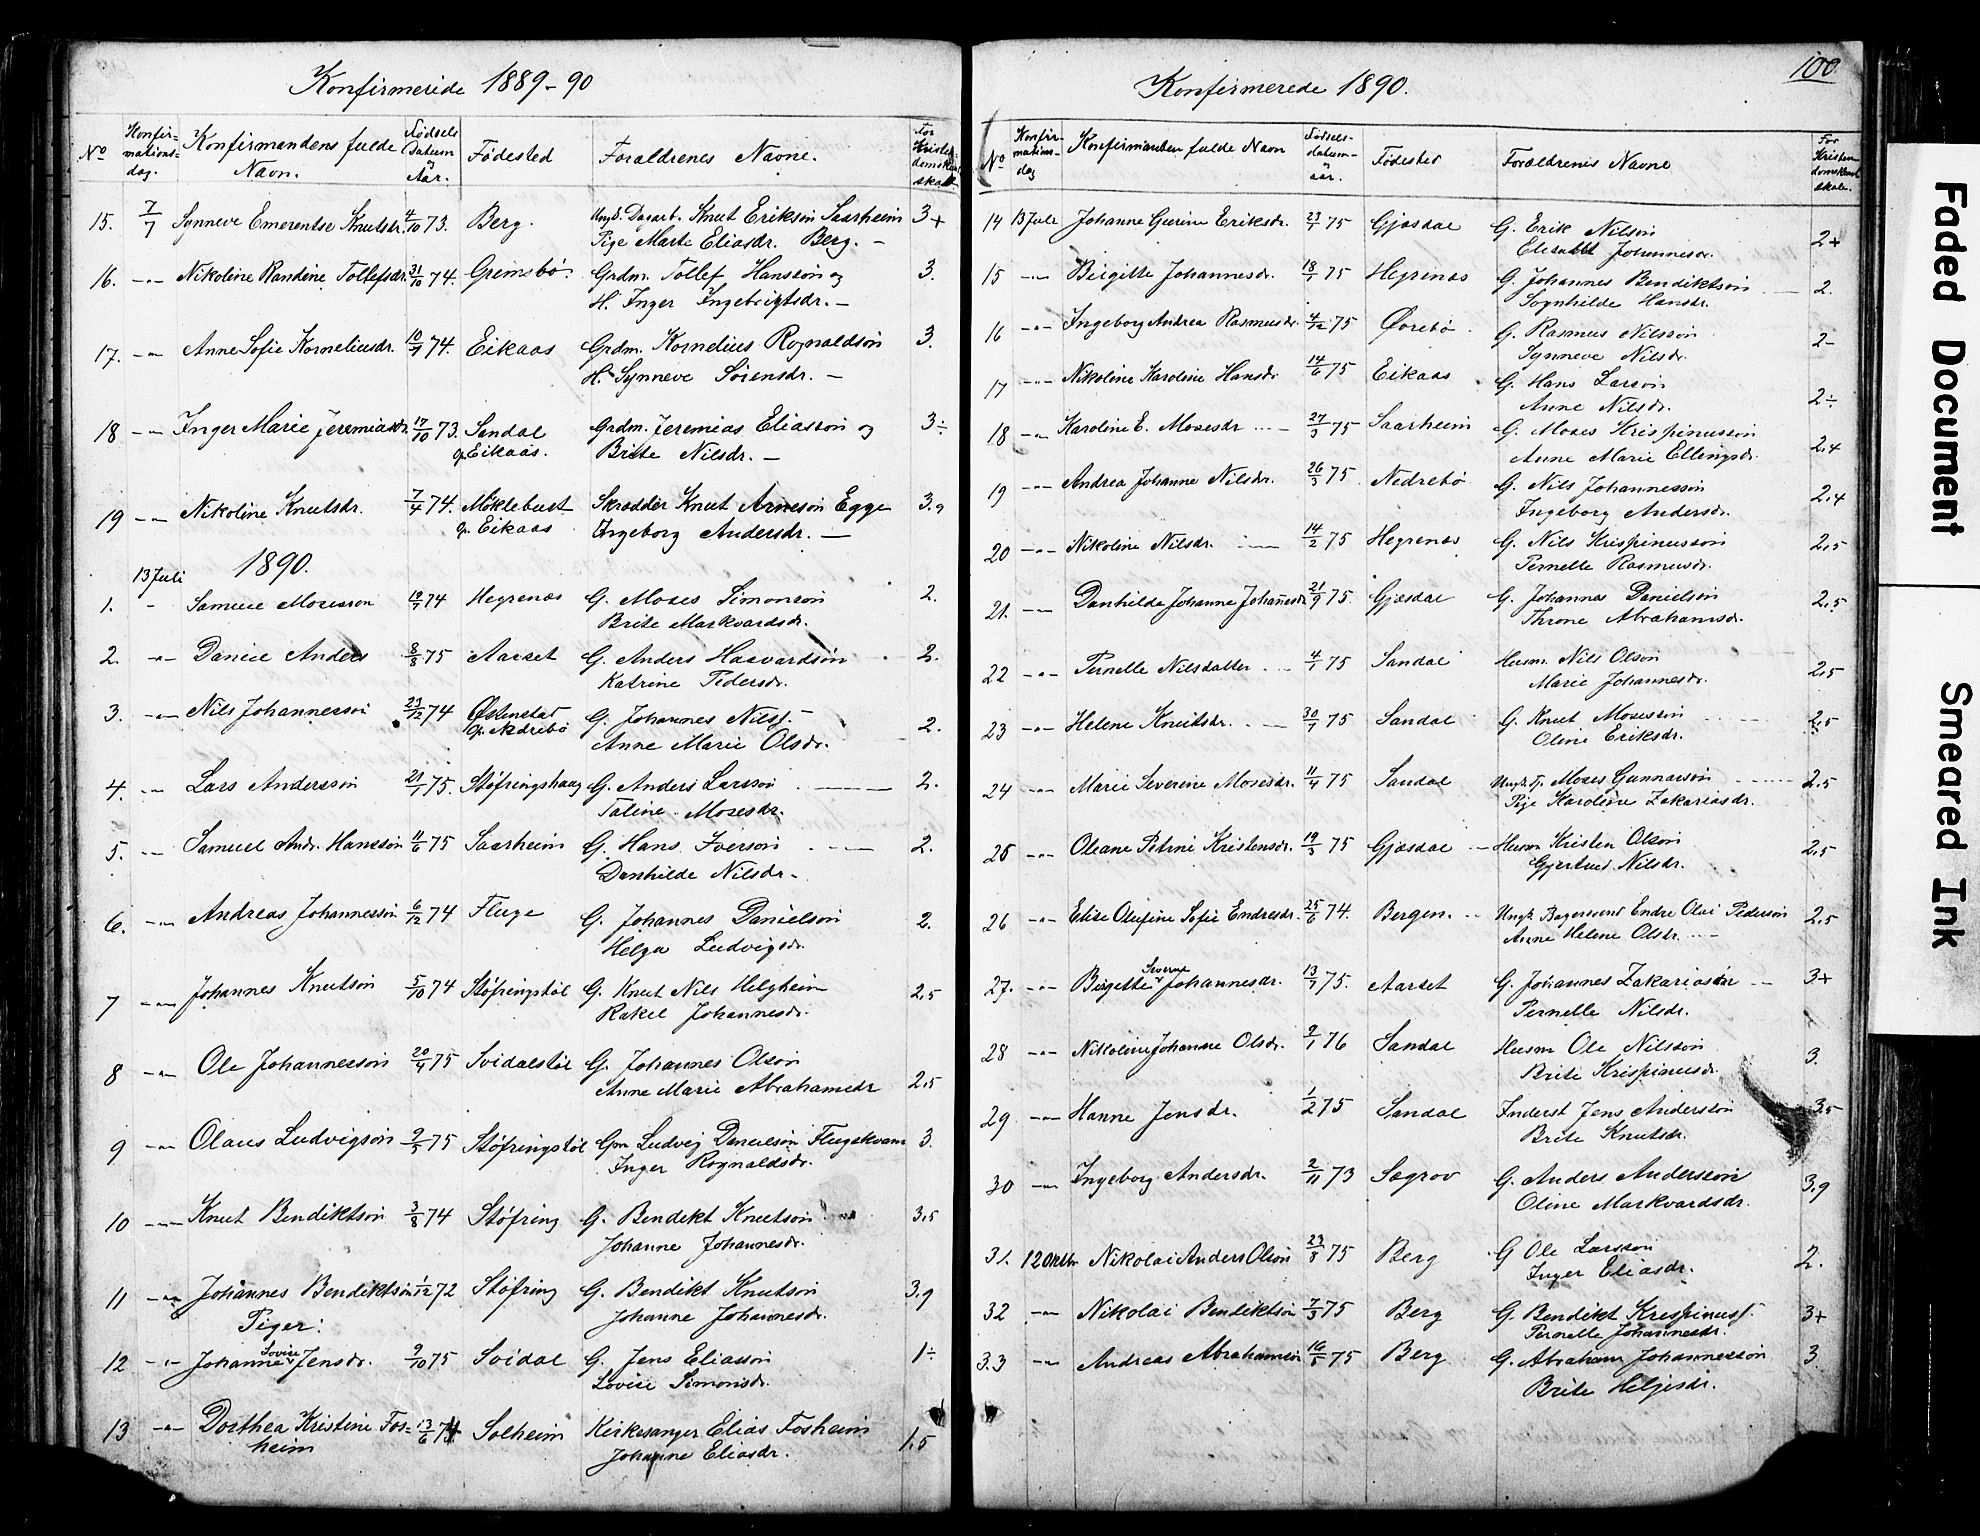 Konfirmeride 1889-90
No Konfir=mations=dag. Konfirmandens fulde Navn. Fødsels Datum Aar. Fødested Foraldrenes Navne.
15. 7/7 Synneve Emerentse Knutsdr. 4/10 73. Berg. Ungk. Dagarb. Knut Erikson Saarheim 3+
Pige Marte Eliasdr. Berg. -
16. -"- Nikoline Randine Tollefsdr. 31/10 74. Greimsbø. Grdm. Tollef Hansson og 3.
H. Inger Ingebrigtsdr. -
17. -"- Anne Sofie Korneliusdr. 10/7 74. Eikaas Grdm. Kornelius Rognaldsøn 3.
H. Synneve Sørensdr. -
18 -"- Inger Marie Jeremiasdr. 17/10 73. Sandal Grdm. Jeremias Eliasson og 3÷
p. Eikaas. Brite Nilsdr. -
19 -"- Nikoline Knutsdr. 7/4 74. Møklebust Skrædder Knut Arneson Egge 3.9
p. Eikaas Ingeborg Andersdr. -
1890.
13 Juli
1. - Samuel Mosesson 19/7 74 Hegrenæs G. Moses Simonson 2.
Brite Markvardsdr.
2. -"- Daniel Anders 8/8 75 Aarset G. Anders Haavardsøn 2.
Katrine Pedersdr.
3. -"- Nils Johannesson 23/12 74 Østenstad G. Johannes Nilss. 2.
p. Nedrebø Anne Marie Olsdr.
4. -"- Lars Andersson 21/7 75. Støfringshaug G. Anders Larsson 2.
Taline Mosesdr.
5. -"- Samuel Andr. Hansson 11/6 75 Saarheim G. Hans Iverson 2.
Danhilde Nilsdr.
6. -"- Andreas Johannesson 6/12 74 Fluge G. Johannes Danielson 2.
Helga Ludvigsdr.
7 -"- Johannes Knutson 5/10 74 Støfringstøl G. Knut Nils Helgheim 2,5
Rakel Johannesdr.
8 -"- Ole Johannesson 20/4 75 Svidalstøl G. Johannes Olson
Anne Marie Abrahamsdr 2,5
9 -"- Olaus Ludvigson 9/5 75 Støfringstøl Gm Ludvig Danielson Flugekvam 3.
Inger Rognaldsdr.
10 -"- Knut Bendiktson 3/8 74 Støfring G. Bendikt Knutson 3,5
Johanne Johannesdr.
11 -"- Johannes Bendiktson 1/12 72 Støfring G. Bendikt Knutson 3.9
Johanne Johannesdr.
Piger:
12 -"- Johanne Lovise Jensdr. 9/10 75 Svidal G. Jens Eliasson 1÷
Lovise Simonsdr.
13 -"- Dorthea Kristine Fos=heim 13/6 74 Solheim Kirkesanger Elias Fosheim 1,5
Johanne Eliasdr.
Konfirmerede 1890.
100
No Konfir-mations-dag Konfirmanten fulde Navn Fødsels-datum-aar. Fødested Forældrenis Navne For Kristen
14 13 Juli Johanne Gurine Eriksdr. 23/1 75 Gjøsdal G. Erik Nilson 2+
Elisabet Johannesdr.
15 -"- Birgitte Johannesdr. 18/1 75 Hegrenæs G. Johannes Bendiktson 2.
Sognhilde Hansdr.
16 -"- Ingeborg Andrea Rasmusdr. 4/12 75 Øvrebø G. Rasmus Nilsson 2-
Synneve Nilsdr.
17 -"- Nikoline Karoline Hansdr 14/6 75 Eikaas G. Hans Larson 2÷
Anne Nilsdr.
18 -"- Karoline E. Mosesdr 27/3 75 Saarheim G. Moses Krispinusson 2,4
Anne Marie Ellingsdr.
19 -"- Andrea Johanne Nilsdr. 26/3 75 Nedrebø G. Nils Johannesson 2,4
Ingeborg Andersdr.
20 -"- Nikoline Nilsdr. 14/2 75 Hegrenæs G. Nils Krispinusson 2,5
Pernelle Rasmusdr.
21. -"- Danhilde Johanne Johannesdr 21/9 75. Gjøsdal G. Johannes Danielson 2,5
Throne Abrahamsdr.
22 -"- Pernelle Nilsdatter 4/1 75 Sandal Husm. Nils Olson 2,5
Marie Johannesdr.
23 -"- Helene Knutsdr. 30/7 75 Sandal G. Knut Mosesson 2,5
Oline Eriksdr.
24 -"- Marie Severine Mosesdr. 11/4 75 Sandal Ungk. Tj. Moses Gunnarson 2,5
Pige Karoline Zakariasdr.
25 -"- Oleane Petrine Kristensdr. 19/3 75 Gjøsdal Husm Kristen Olson 2,5
Gjertrud Nilsdr.
26 -"- Elise Olufine Sofie Endresdr. 25/6 74. Bergen. Ungk. Bagersvend Endre Olai Pederson 2,5
Anne Helene Olsdr.
27. -"- Birgitte Severine Johannesdr. 13/7 75. Aarset G. Johannes Zakariason 3+
Pernelle Nilsdr.
28 -"- Nikoline Johanne Olsdr. 9/1 76 Sandal Husm Ole Nilsson 3.
Brite Krispinusdr.
29 -"- Hanne Jensdr. 1/2 75 Sandal Inderst Jens Andersson 3,5
Brite Knutsdr.
30 -"- Ingeborg Andersdr. 2/11 73 Søgrov G. Anders Andersson 3.9
Oline Markvardsdr.
31. 12 Oktbr Nikolai Anders Olson 23/8 75 Berg G Ole Larsson 2.
Inger Eliasdr.
32 -"- Nikolai Bendiktson 7/3 75 Berg G. Bendikt Krispinuss. 3+
Pernelle Johannesdr.
33 -"- Andreas Abrahamson 16/5 75 Berg G. Abraham Johannesson 3
Brite Helgesdr.
Faded Document
Smeared Ink